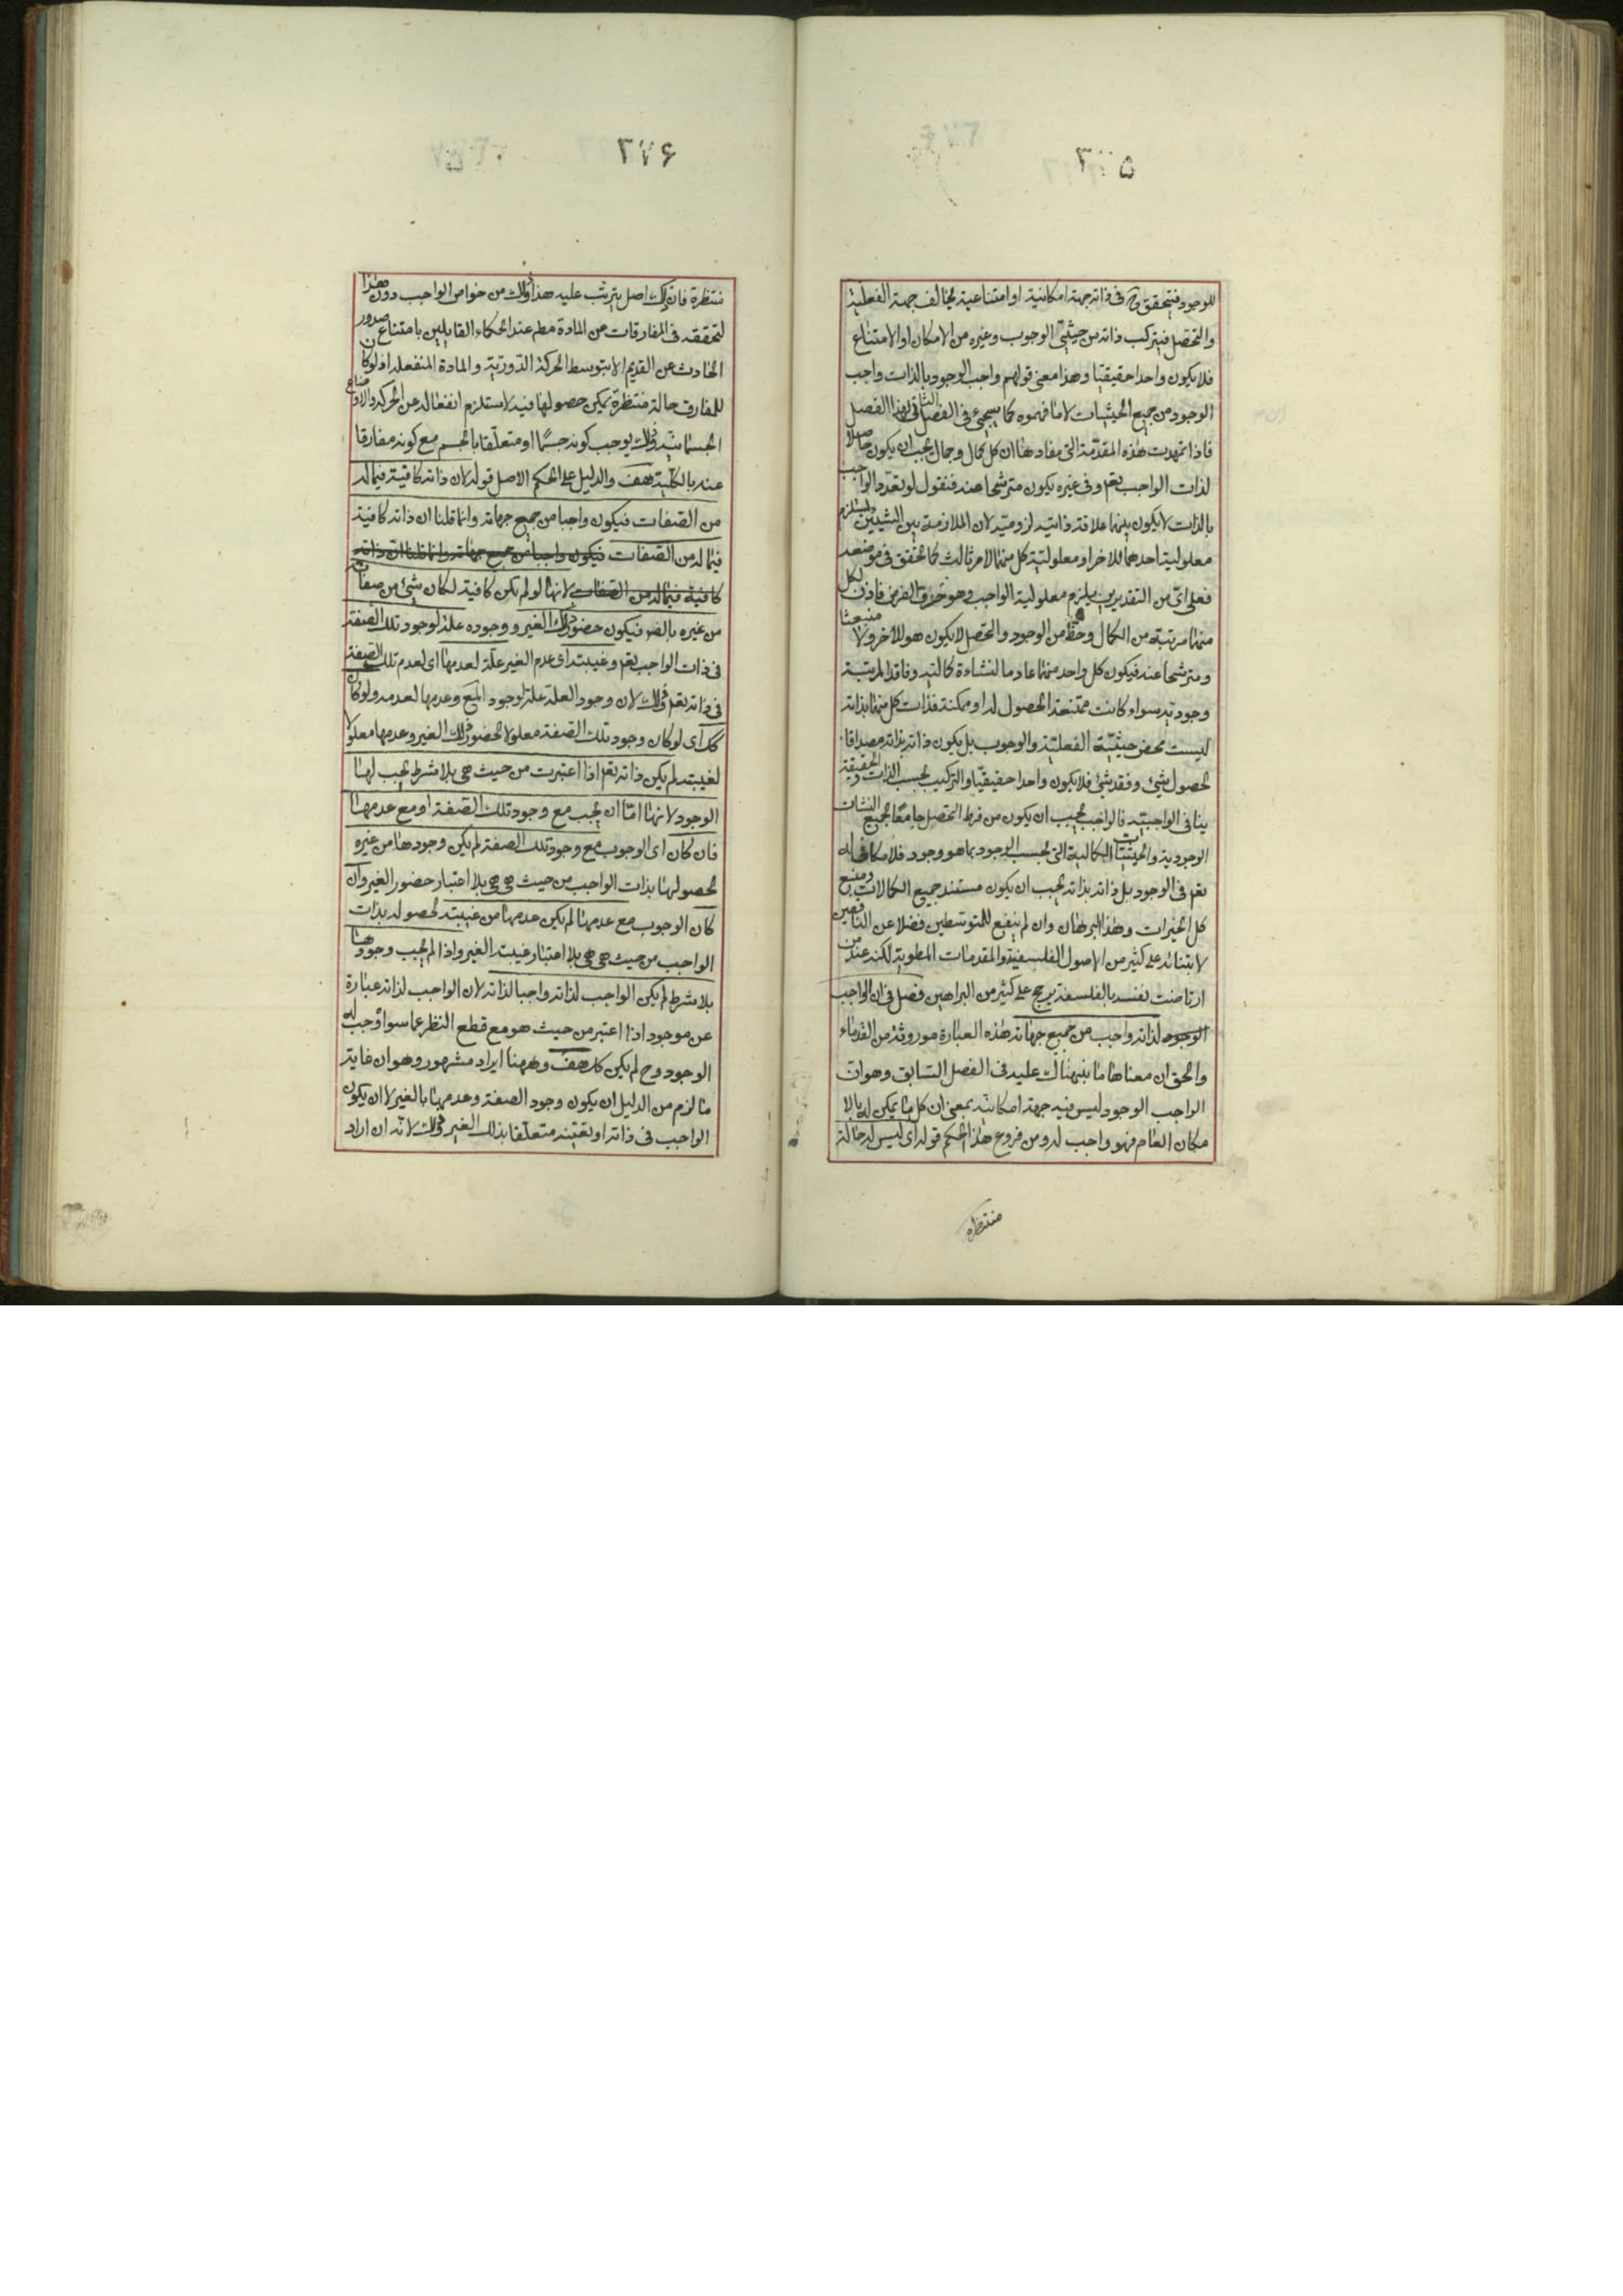 ٣٠٥
للوجود فيتحقق ح في ذاته جهة امكانية او امتناعية يخالف جهة الفعلية
والتحصل فيتركب ذاته من حيثيتي الوجوب وغيره من الامكان او الامتناع
فلا يكون واحدا حقيقيا وهذا معنى قولهم واجب الوجود بالذات واجب
الوجود من جميع الحيثيات لا ما فهموه كما سيجيء في الفصل الثاني لهذا الفصل
فاذا تمهدت هذه المقدمة التي مفادها ان كل كمال وجمال يجب ان يكون حاصلا
لذات الواجب تعم وفي غيره يكون مترشحا عنه فنقول لو تعدد الواجب
بالذات لا يكون بينهما علاقة ذاتية لزومية لان الملازمة بين الشيئين يستلزم
معلولية احدهما للاخر او معلولية كل منهما لامر ثالث كما تحقق في موضعه
فعلى اي من التقديرين يلزم معلولية الواجب وهو خرق الفرض فاذن لكل
منهما مرتبة من الكمال وحظ من الوجود والتحصل لا يكون هو للاخر ولا منبعثا
ومترشحا عنه فيكون كل واحد منهما عادما لنشاءة كمالية وفاقدا لمرتبة
وجودية سواء كانت ممتنعة الحصول له او ممكنة فذات كل منهما بذاته
ليست محض حيثية الفعلية والوجوب بل يكون ذاته بذاته مصداقا
لحصول شيء وفقد شيء فلا يكون واحدا حقيقيا والتركيب بحسب الذات والحقيقة
ينافي الواجبية فالواجب يجب ان يكون من فرط التحصل جامعا لجميع النشات
الوجودية والحيثيات الكمالية التي بحسب الوجود بما هو وجود فلا مكافئ له
تعم في الوجود بل ذاته بذاته يجب ان يكون مستند جميع الكمالات ومنبع
كل الخيرات وهذا البرهان وان لم ينفع للمتوسطين فضلا عن الناقصين
لابتنائه على كثير من الاصول الفلسفية والمقدمات المطوية لكنه عند من
ارتاضت نفسه بالفلسفة يرجح على كثير من البراهين فصل في ان الواجب
الوجود لذاته واجب من جميع جهاته هذه العبارة موروثة من القدماء
والحق ان معناها ما نبهناك عليه في الفصل السابق وهو ان
الواجب الوجود ليس فيه جهة امكانية بمعنى ان كل ما يمكن له بالا
مكان العام فهو واجب له ومن فروع هذا الحكم قوله اي ليس له حالة
منتظره
٣٧۶
منتظرة فان ذلك اصل يترتب عليه هذا وذلك من خواص الواجب دون هذا
لتحققه في المفارقات من المادة مطم عند الحكماء القايلين بامتناع صدور
الحادث عن القديم الا بتوسط الحركة الدورية والمادة المنفعلة اذ لو كان
للمفارق حالة منتظرة يمكن حصولها فيه لاستلزم انفعاله عن الحركة والاوضاع
الجسمانية وذلك يوجب كونه جسما او متعلقا بالجسم مع كونه مفارقا
عنه بالكلية هف والدليل على الحكم الاصل قوله لان ذاته كافية فيما له
من الصفات فيكون واجبا من جميع جهاته وانما قلنا ان ذاته كافية
فيما له من الصفات فيكون واجبا من جميع جهاته وانما قلنا ان ذاته
كافية فيما له من الصفات لانها لو لم تكن كافية لكان شيء من صفاته
من غيره بالضر فيكون حضور ذلك الغير ووجوده علة لوجود تلك الصفة
في ذات الواجب تعم وغيبته اي عدم الغير علة لعدمها اي لعدم تلك الصفة
في ذاته تعم وذلك لان وجود العلة علة لوجود المع وعدمها لعدمه ولو كان
كك اي لو كان وجود تلك الصفة معلولا لحضور ذلك الغير وعدمها معلولا
لغيبته لم يكن ذاته تعم اذا اعتبرت من حيث هي بلا شرط يجب لها
الوجود لانها اما ان يجب مع وجود تلك الصفة او مع عدمها
فان كان اي الوجوب مع وجود تلك الصفة لم يكن وجودها من غيره
لحصولها بذات الواجب من حيث هي هي بلا اعتبار حضور الغير وان
كان الوجوب مع عدمها لم يكن عدمها من غيبته لحصوله بذات
الواجب من حيث هي هي بلا اعتبار غيبته الغير واذا لم يجب وجودها
بلا شرط لم يكن الواجب لذاته واجبا لذاته لان الواجب لذاته عبارة
عن موجود اذا اعتبر من حيث هو مع قطع النظر عما سواه وجب له
الوجود وح لم يكن كك هف وههنا ايراد مشهور وهو ان غاية
ما لزم من الدليل ان يكون وجود الصفة وعدمها بالغير لا ان يكون
الواجب في ذاته او تعينه متعلقا بذلك الغير وذلك لانه ان اراد